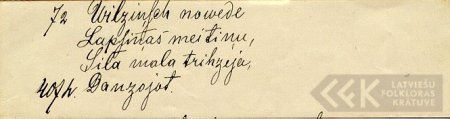 72 Wilziņsch nowede
Lapsiņas meitiņu,
Sila mala trihzeja,
Danzojot.
LATVIEŠU
FOLKLORAS
KRĀTUVE